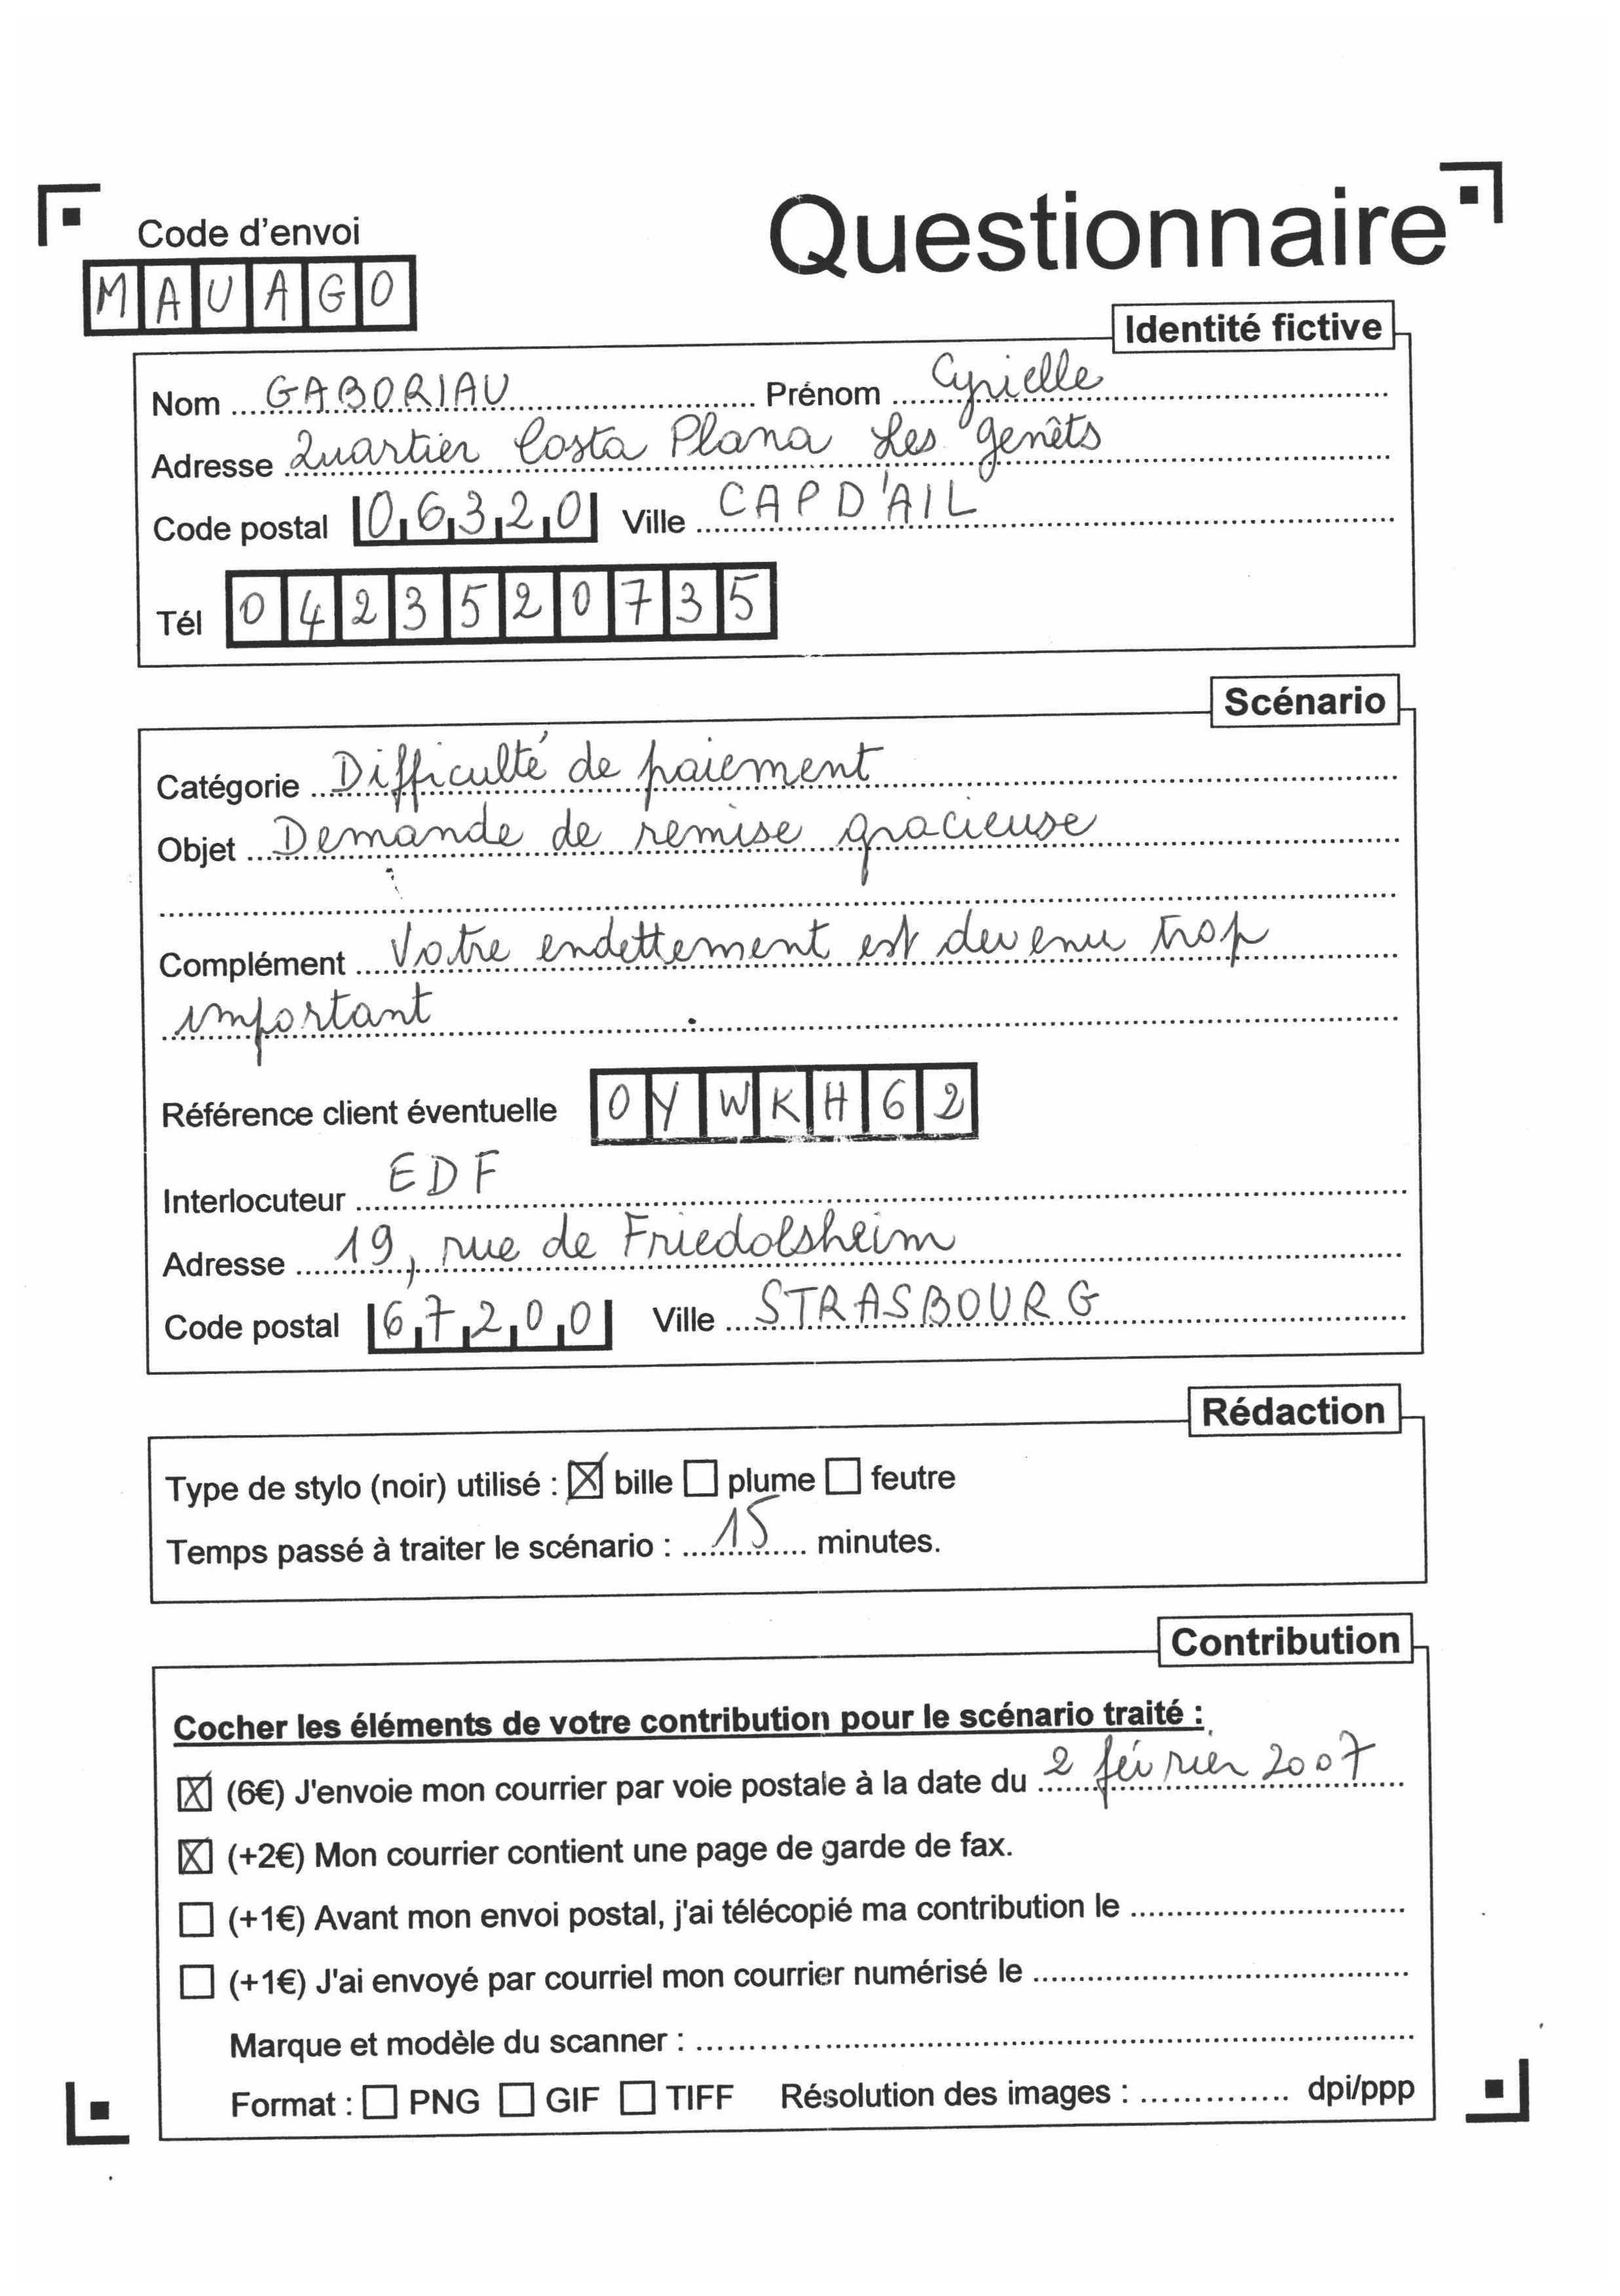 Code d'envoi
Questionnaire
MAUAGO
Identité fictive
Nom GABORIAU Prénom Cyrielle
Adresse Quartier Costa Plana Les genêts
Code postal 06320 Ville CAP D'AIL
Tél 0423520735
Scénario
Catégorie Difficulté de paiement
Objet Demande de remise gracieuse
Complément Votre endettement est devenu trop
important
Référence client éventuelle OYWKH62
Interlocuteur EDF
Adresse 19, rue de Friedolsheim
Code postal 67200 Ville STRASBOURG
Rédaction
Type de stylo (noir) utilisé : ☒ bille ☐ plume ☐ feutre
Temps passé à traiter le scénario : 15 minutes.
Contribution
Cocher les éléments de votre contribution pour le scénario traité :
☒ (6€) J'envoie mon courrier par voie postale à la date du 2 février 2007
☒ (+2€) Mon courrier contient une page de garde de fax.
☐ (+1€) Avant mon envoi postal, j'ai télécopié ma contribution le
☐ (+1€) J'ai envoyé par courriel mon courrier numérisé le
Marque et modèle du scanner :
Format : ☐ PNG ☐ GIF ☐ TIFF Résolution des images : dpi/ppp